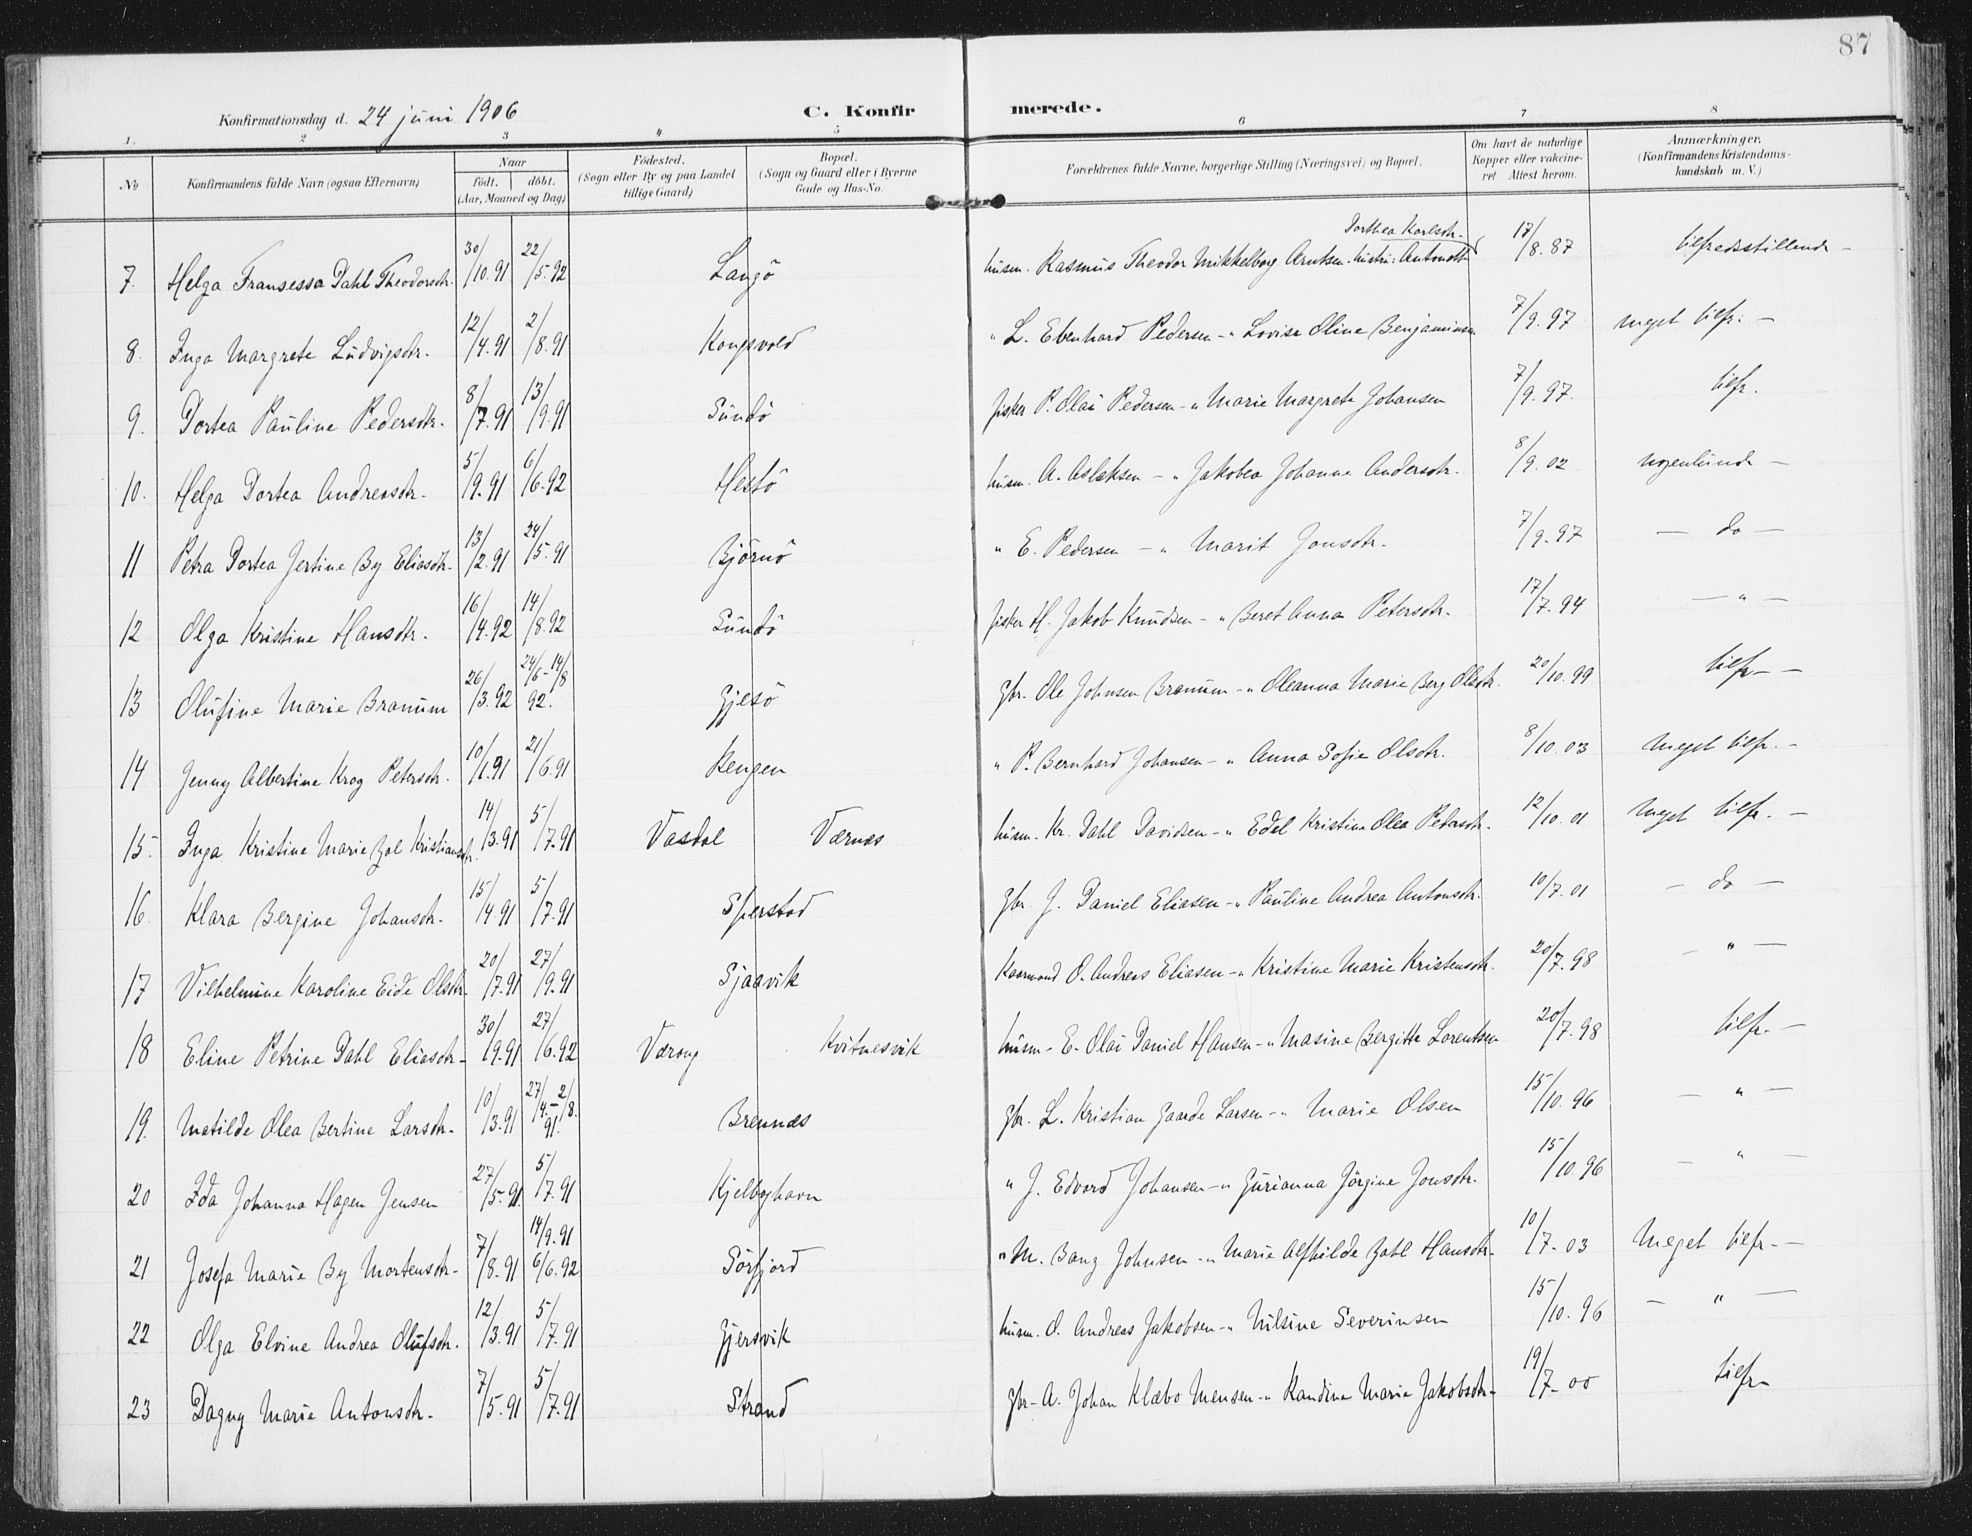 87
Konfirmationsdag d. 24 juni 1906
C. Konfirmerede.
1. 2 3 " 5 6 7 8
№ Konfirmandens fulde Navn (ogsaa Efternavn) Naar födt. döbt. (Aar, Maaned og Dag) Födested. (Sogn eller By og paa Landet tillige Gaard) Bopæl. (Sogn og Gaard eller i Byerne Gade og Hus-No. Forældrenes fulde Navne, borgerlige Stilling (Næringsvei) og Bopæl. Om havt de naturlige Kopper eller vakcineret Attest herom. Anmærkninger. (Konfirmandens Kristendomskundskab m.V.)
7. Helga Fransessa Dahl Theodorsdtr. 30/10.91 22/5.92 Langö husm. Rasmus Theodor Mikkelborg Arntsen hustru: Antonette Dorthea Karlsdtr. 17/8.87 tilfredsstillende –
8. Inga Margrete Ludvigsdtr. 12/4.91 2/8.91 Kongsvold " L. Ebenhard Pedersen – " Lovise Oline Benjaminsen 7/9.97 meget tilfr. –
9. Dortea Pauline Pedersdtr. 8/7.91 13/9.91 Sundö fisker P. Olai Pedersen – " Marie Margrete Johansen 7/9.97. tilfr.
10. Helga Dortea Andreasdtr. 5/9.91 6/6.92 Hestö husm. A. Aslaksen – " Jakobea Johanna Andersdtr. 8/9.02 nogenlunde –
11 Petra Dortea Jertine By Eliasdtr. 13/2.91 24/5.91 Björnö " E. Pedersen – " Marit Jonsdtr. 7/9.97 – do –
12 Olga Kristine Hansdtr. 16/4.92 14/8.92 Sundö fisker H. Jakob Knudsen – " Beret Anna Petersdtr. 17/7.94 – " –
13 Olufine Marie Branum 26/3.92 24/6 – 14/8 92. Gjesö gbr. Ole Johnsen Brannum – " Oleanna Marie Berg Olsdtr. 20/10.99 tilfr. –
14 Jenny Albertine Krog Petersdtr. 10/1.91 21/6.91 Rengen " P. Bernhard Johansen – " Anna Sofie Olsdtr. 8/10.03 Meget tilfr. –
15. Inga Kristine Marie Zal Kristiansdtr. 14/3.91 5/7.91 VasdalVærnes husm. Kr. Dahl Davidsen – " Edel Kristine Olea Pedersdtr. 12/10.01 Meget tilfr. –
16. Klara Bergine Johansdtr. 15/4.91 5/7.91 Sperstad gbr. J. Daniel Eliasen – " Pauline Andrea Antonsdtr. 10/7.01 – do –
17 Vilhelmine Karoline Eide Olsdtr. 20/7.91 27/9.91 Sjaavik Kaarmand O. Andreas Eliasen – " Kristine Marie Kristensdtr. 20/7.98 – " –
18 Eline Petrine Dahl Eliasdtr. 30/9.91 27/6.92 Værøy Kvitnesvik husm. E. Olai Daniel Hansen – " Masine Bergitte Lorentsen 20/7.98 tilfr. –
19. Matilde Olea Bertine Larsdtr. 10/3.91 27/4. – 2/8. 91. Brennes gbr. L. Kristian Gaarde Larsen – " Marie Olsen 15/10.96 – " –
20 Ida Johanna Hagen Jensen 27/5.91. 5/7.91 Kjelbyhavn " J. Edvard Johansen – " Gurianna Jörgine Jonsdtr. 15/10.96 – " –
21 Josefa Marie By Mortensdtr. 7/8.91 14/9.91 6/6.92 Sörfjord " M. Bang Johnsen – " Marie Alfhilde Zahl Hansdtr. 10/7.03 Meget tilfr. –
22 Olga Elvine Andrea Olufsdtr. 12/3.91 5/7.91 Gjersvik husm. O. Andreas Jakobsen – " Nilsine Severinsen 15/10.96 – " –
23 Dagny Marie Antonsdtr. 7/5.91 5/7.91 Strand gbr. A. Johan Klæbo Mensen – " Randine Marie Jakobsdtr. 19/7.00 tilfr.